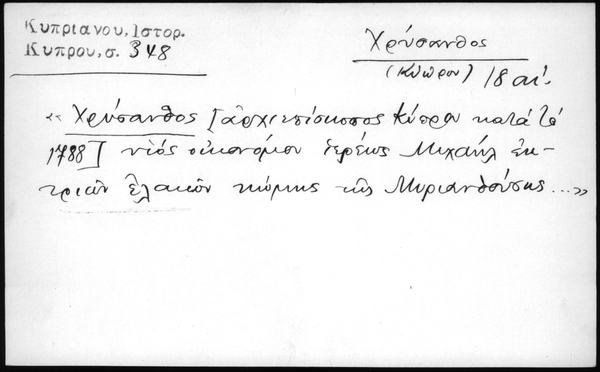 Κυπριανου, Ιστορ.
Κυπρου, σ. 348
Χρύσανθος
(Κύπρου) 18 αι.
« Χρύσανθος [ἀρχιεπίσκοπος Κύπρου κατά τό
1788] υἱός οἰκονόμου ἱερέως Μιχαήλ ἐκ
τριῶν ἐλαιῶν κώμης τῆς Μυριανθούσης...»